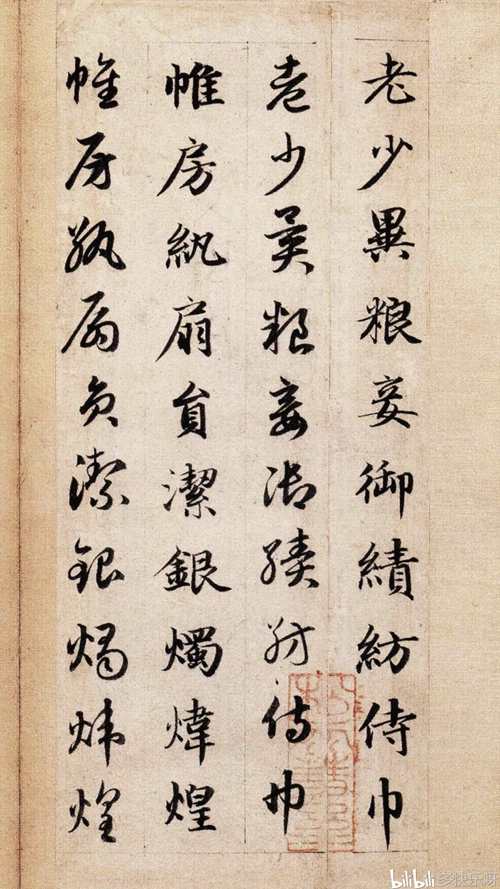 老少異粮妾御績紡侍巾
老少異粮妾御績紡侍巾
帷房紈扇員潔銀燭煒煌
帷房紈扇員潔銀燭煒煌
bilibili